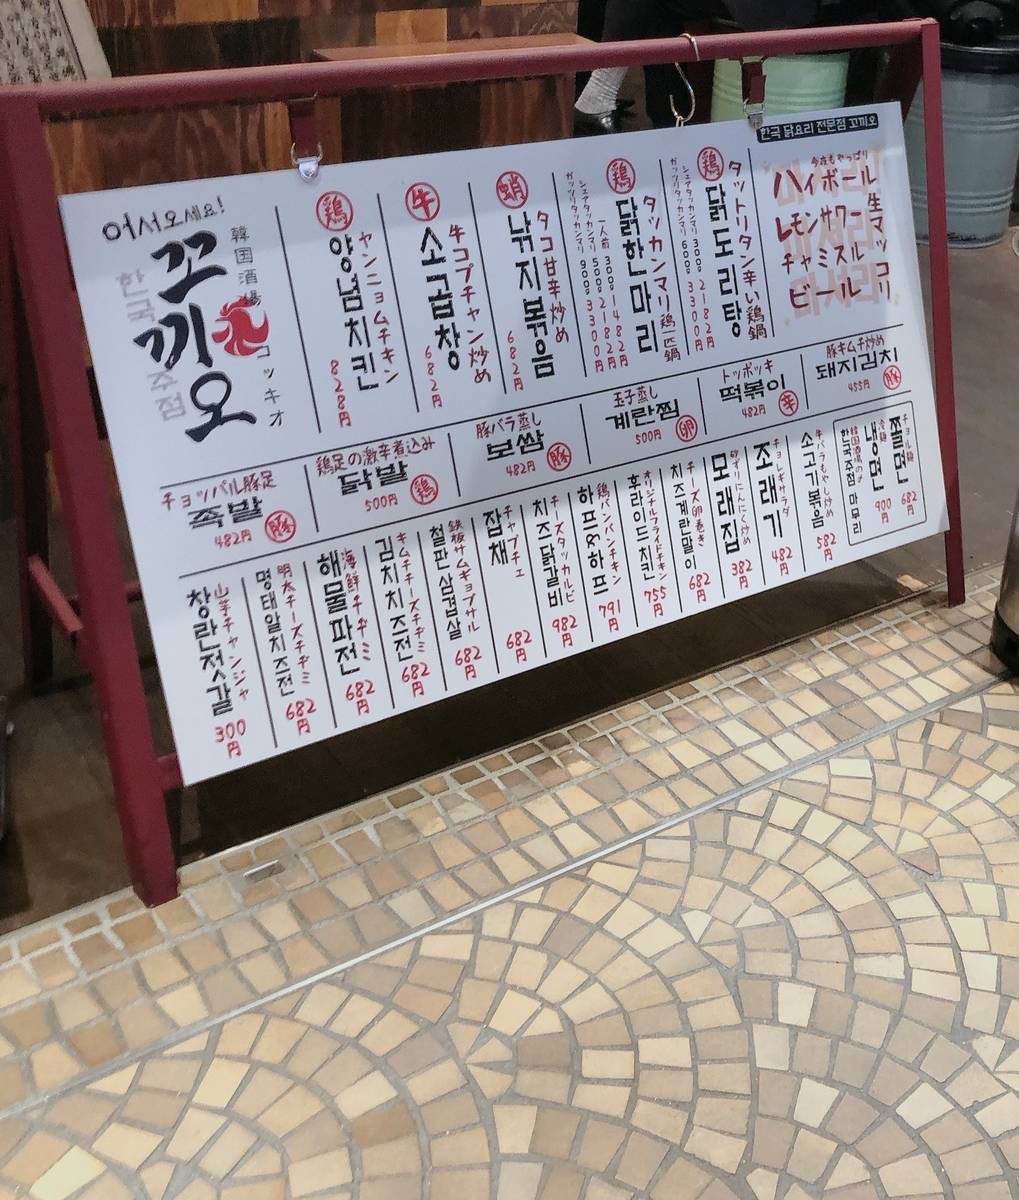 어서오세요!
꼬끼오
한국 주점
韓国酒場
コッキオ
鶏
양념치킨
ヤンニョムチキン
828円
牛
소곱창
牛コプチャン炒め
682円
蛸
낚지볶음
タコ甘辛炒め
682円
鶏
닭한마리
タッカンマリ鶏一匹鍋
一人前 300g 1482円
シェアタッカンマリ 500g 2182円
ガッツリタッカンマリ 900g 3300円
鶏
닭도리탕
タットリタン辛い鶏鍋
シェアタッカンマリ 300g 2182円
ガッツリタッカンマリ 600g 3300円
한국 닭요리 전문점 꼬끼오
今宵もやっぱり
ハイボール
レモンサワー
チャミスル
ビール
生マッコリ
마셔라
마셔라
마셔라
チョッパル豚足
족발
482円
豚
鶏足の激辛煮込み
닭발
500円
鶏
豚バラ蒸し
보쌈
482円
豚
玉子蒸し
계란찜
500円
卵
トッポッキ
떡볶이
482円
辛
豚キムチ炒め
돼지김치
455円
豚
창란젓갈
山芋チャンジャ
300円
명태알치즈전
明太チーズチヂミ
682円
해물파전
海鮮チヂミ
682円
김치치즈전
キムチチーズチヂミ
682円
철판 삼겹살
鉄板サムギョプサル
682円
잡채
チャプチェ
682円
치즈닭갈비
チーズタッカルビ
982円
하프&하프
鶏パンパンチキン
791円
후라이드치킨
オリジナルフライドチキン
755円
치즈계란말이
チーズ卵巻き
682円
모래집
砂ずりにんにく炒め
382円
조래기
チョレギサラダ
482円
소고기볶음
牛バラもやし炒め
582円
韓国酒場の〆
한국주점 마무리
냉면
冷麺
900円
쫄면
チョル麺
682円